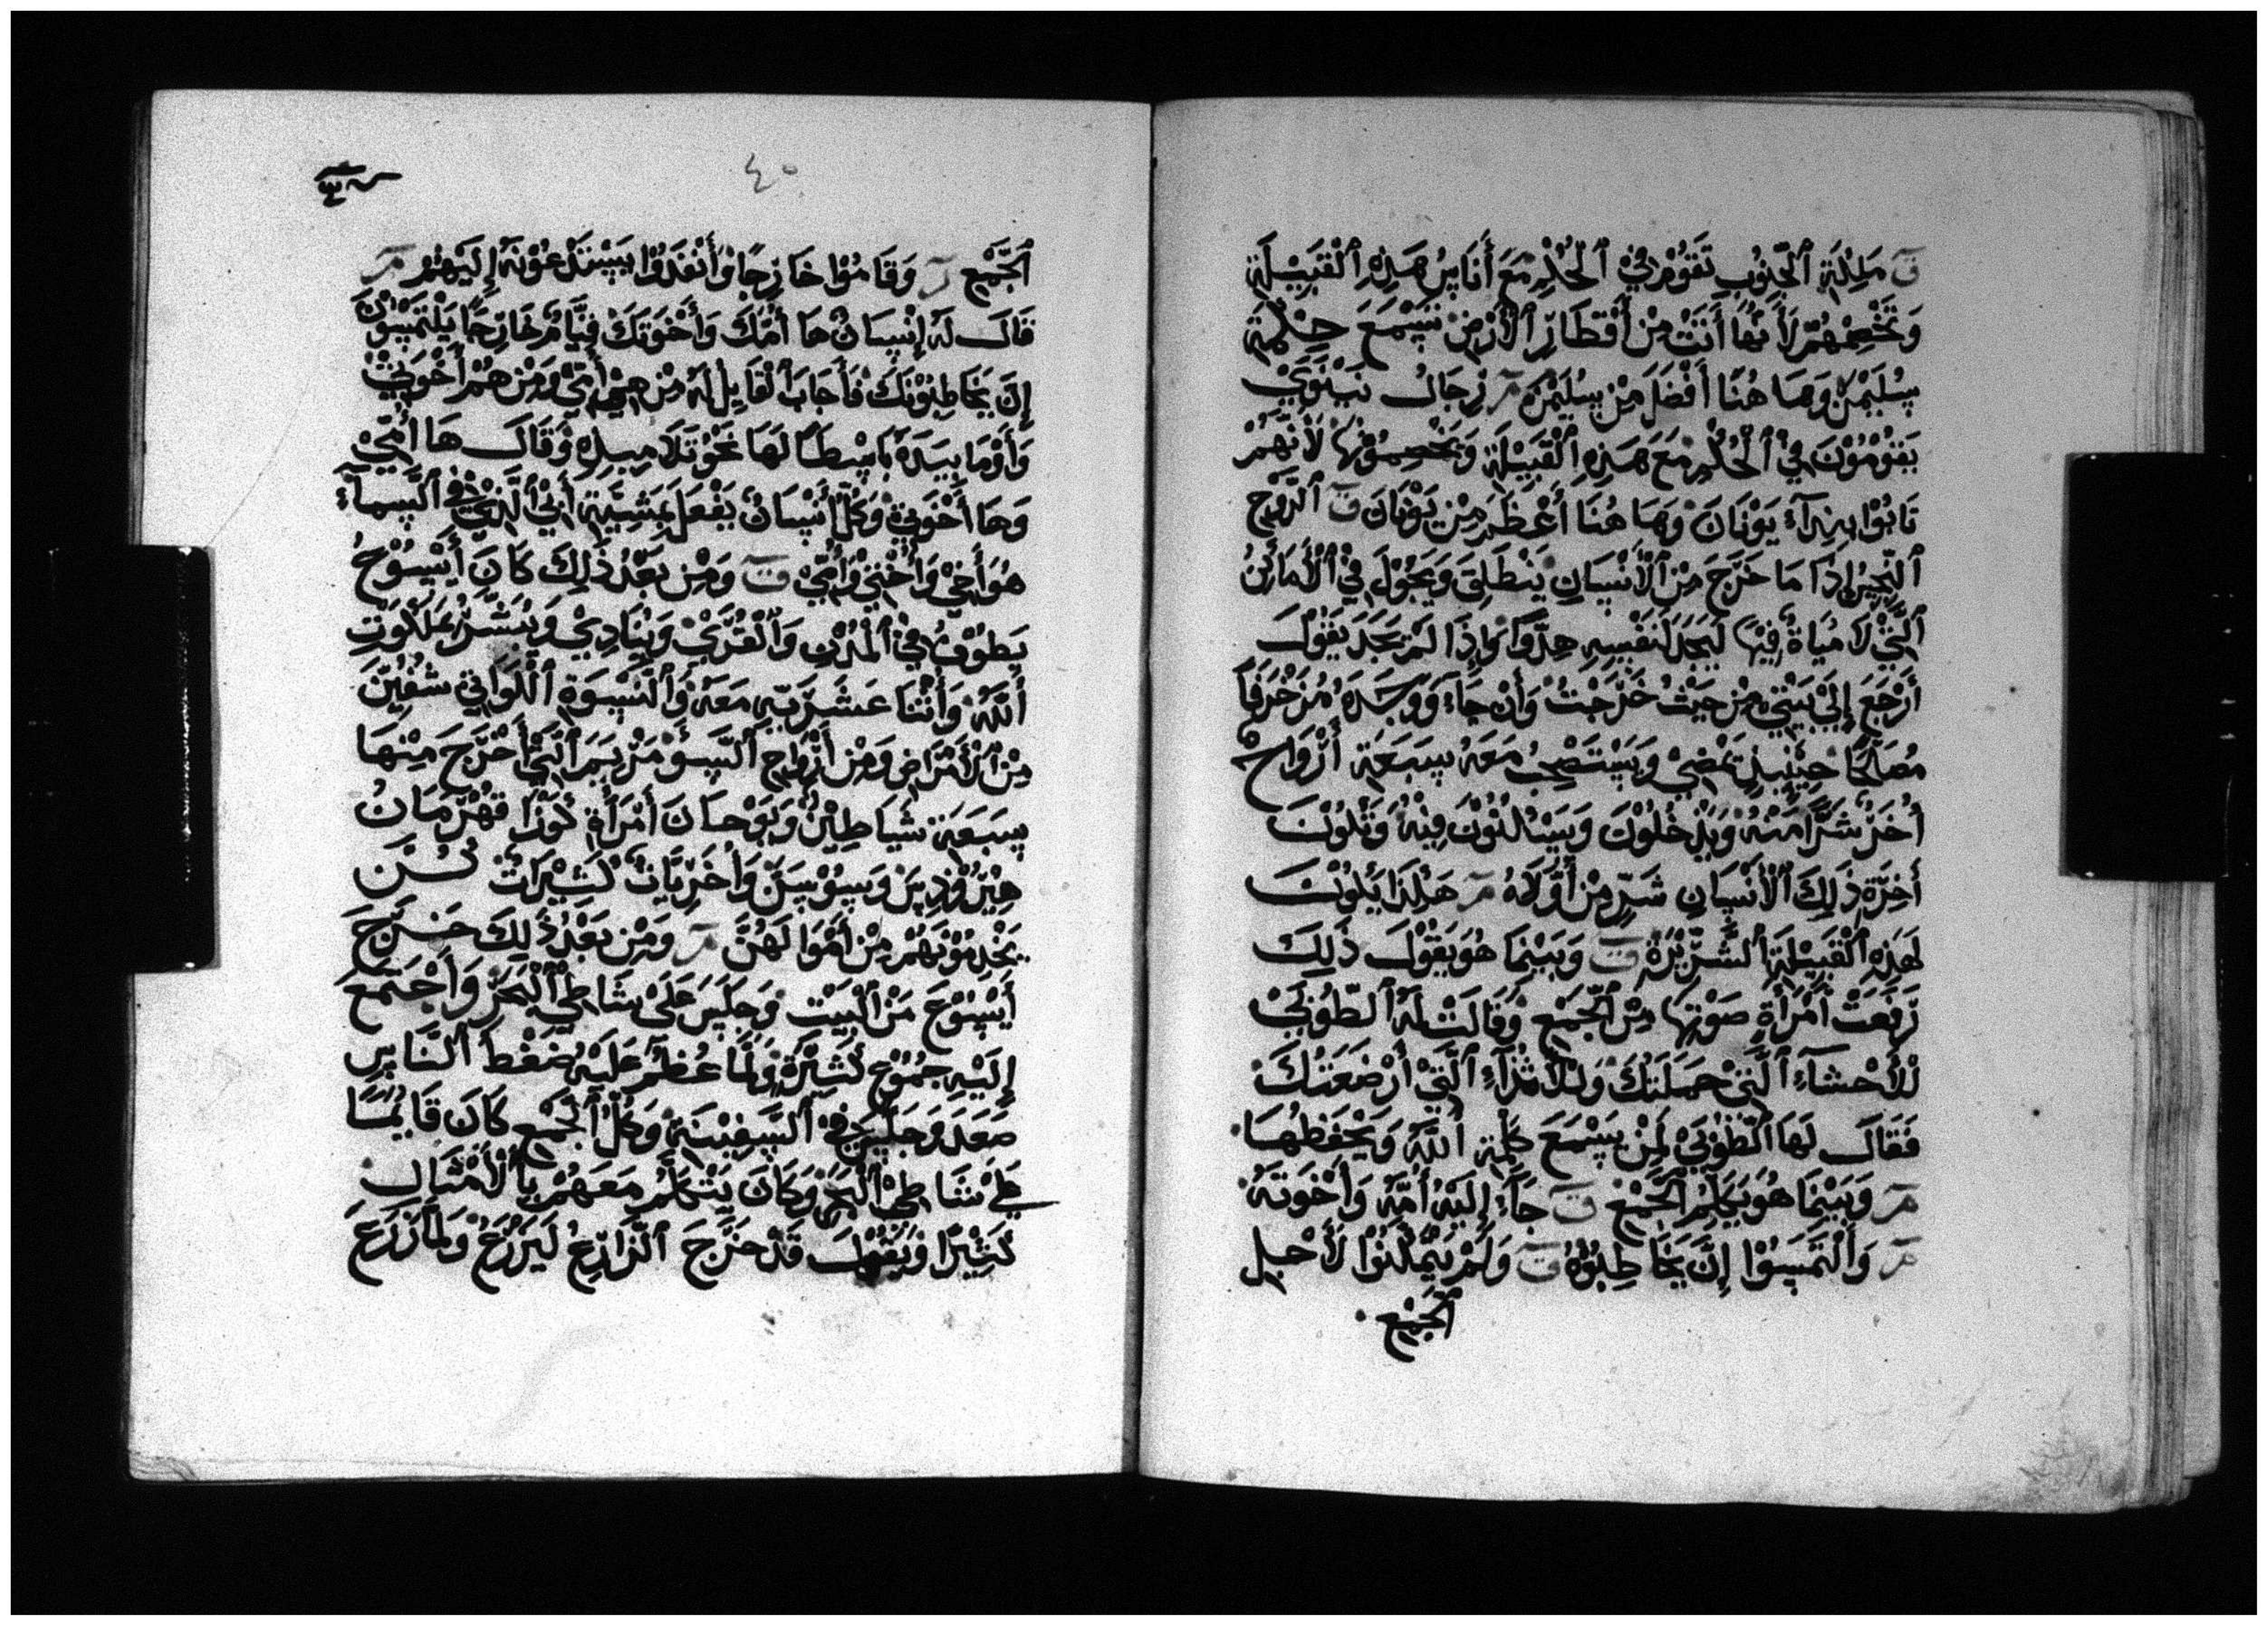 ت مَلِكَةُ ٱلْجَنُوبِ تَقُومُ فِي ٱلْحُكْمِ مَعَ أُنَاسِ هَذِهِ ٱلْقَبِيْلَةِ
وَتَخْصِمُهُمْ لِأَنَّهَا أَتَتْ مِنْ أَقْطَارِ ٱلْأَرْضِ تَسْمَعَ حِكْمَةَ
سُلَيْمَنَ وَهَا هُنَا أَفْضَلَ مِنْ سُلَيْمَنَ مر رِجَالُ نِيْنَوَيْ
يَقُوْمُوْنَ فِيْ ٱلْحُكْمِ مَعَ هَذِهِ ٱلْقَبِيْلَةِ وَيَخْصِمُوْنَهَا لِأَنَّهُمْ
تَابُوْا بِنِدَآءِ يَوْنَانَ وَهَا هُنَا أَعْظَمَ مِنْ يَوْنَانَ ت ٱلرُّوْحُ
ٱلنَّجِسُ إِذَا مَا خَرَجَ مِنَ ٱلْأَنْسَانِ يَنْطَلِقَ وَيَجُوْلَ فِيْ ٱلْأَمَاكِنُ
ٱلَّتِيْ لَا مُيَاةَ فِيْهَا لِيَجِدَ لِنَفْسِهِ هِدُوًا وَإِذَا لَمْ يَجِدَ يَقُوْلَ
أَرْجَعَ إِلَيْ بَيْتِيْ مِنْ حَيْثُ خَرَجْتُ وَأَنْ جَاءَ وَوَجَدَهُ مُزَخْرَفًا
مُصَلَحًا حِيْنَيِذٍ يَمْضِيْ وَيَسْتَصْحِبُ مَعَهُ سَبَعَةَ أَرْوَاحٌ
أُخَرَ شَرًّا مِنْهُ وَيَدْخُلُوْنَ وَيَسْكُنُوْنَ فِيْهِ وَتَكُوْنَ
أَخِرَةِ ذَلِكَ ٱلْأَنْسَانِ شَرٍّ مِنْ أُوْلَاهُ مر هَكَذَا يَكُوْنَ
لِهَذِهِ ٱلْقَبِيْلَةِ ٱلشِّرِّيْرَةِ ت وَبَيْنَمَا هُوَ يَقُوْلَ ذَلِكَ
رَفَعَتْ أَمْرَأَةٍ صَوْتِهَا مِنَ ٱلْجَمْعِ وَقَالَتْ لَهُ ٱلطُّوْبَيْ
لِلْأَحْشَآءِ ٱلَّتِيْ حَمَلَتْكَ وَلِلْأَثْدَآءِ ٱلَّتِيْ أَرْضَعَتْكَ
فَقَالَ لَهَا ٱلْطُوْبَيْ لِمَنْ يَسْمَعَ كَلِمَةِ أَللَّهِ وَيَحْفَظُهَا
مر وَبَيْنَمَا هُوَ يُكَلِّمُ ٱلْجَمْعُ ت جَاءَ إِلَيْهِ أُمُّهُ وَأَخْوَتَهُ
مر وَٱلْتَمَسُوْا إِنَّ يُخَاطِبُوْهُ ت وَلَمْ يُمْكِنُوْا لِأَجْلِ
ٱلْجَمْعِ
٤٠
ٱلْجَمْعِ ر وَقَامُوْا خَارِجًا وَأَنْفَذُوْا يَسْتَدْعُوْنَهُ إِلَيْهِمْ مر
قَالَ لَهُ إِنْسَانٌ هَا أُمُّكَ وَأَخْوَتَكَ قِيَّامٌ خَارِجًا يَلْتَمِسُوْنَ
إِنَّ يُخَاطِبُوْنَكَ فَأَجَابَ ٱلْقَايِلِ لَهُ مِنْ هِيَ أُمِّيْ وَمِنْ هُمْ أَخْوَتِيْ
وَأَوْمَا بِيَدَهُ بَاسِطًا لَهَا نَحْوَ تَلَامِيذِهِ وَقَالَ هَا أُمِّيْ
وَهَا أَخْوَتِيْ وَكُلُّ أَنْسَانٌ يَفْعَلَ بِمَشِيَّةِ أَبِيْ ٱلَّذِيْ فِي ٱلسَّمآءِ
هُوَ أَخِيْ وَأُخْتِيْ وَأُمِّيْ ت وَمِنْ بَعْدُ ذَلِكَ كَانَ أَيْسُوْعُ
يَطُوْفُ فِيْ ٱلْمُدُنِ وَٱلْقُرَيْ وَيُنَادِيْ وَيُبَشِّرُ بِمَلَكُوْتِ
أَللَّهِ وَأَثْنَا عَشَرِيَّهِ مَعَهُ وَٱلنِّسْوَةِ ٱللَّوَاتِيْ شُفِيْنَ
مِنَ ٱلْأَمْرَاضِ وَمِنْ أَرْوَاحِ ٱلسُّوْءِ مَرْيَمَ ٱلَّتِيْ أَخْرَجَ مِنْهَا
سَبَعَةَ شَيَاطِيْنُ وَيَوْحَانَ أَمْرَأَةِ كُوْزَا قَهْرَمَانُ
هِيْرُوْدِيسَ وَسُوْسَنَ وَأُخْرَيَاتٌ كَثِيْرَاتٌ كُنَّ
يَخْدِمُوْنَهُمْ مِنْ أَمْوَالَهُنَّ مر وَمِنْ بَعْدُ ذَلِكَ خَرَجَ
أَيْسُوْعَ مِنَ ٱلْبَيْتِ وَجَلَسَ عَلَيْ شَاطِيْ ٱلْبَحْرِ وَأَجْتَمَعَ
إِلَيْهِ جُمُوْعٌ كَثِيْرَةٌ وَلَمَّا عُظِمَ عَلَيْهِ ضَغْطُ ٱلنَّاسِ
صَعَدَ وَجَلَسَ فِيْ ٱلسَّفِيْنَةِ وَكُلُّ ٱلْجَمْعِ كَانَ قَايِمًا
عَلَيْ شَاطِيْ ٱلْبَحْرِ وَكَانَ يَتَكَلَّمُ مَعَهُمْ بِٱلْأَمْثَالِ
كَثِيْرًا وَيَقُوْلَ قَدْ خَرَجَ ٱلزَّارِعُ لَيَزْرَعُ وَلَمَّا زَرَعَ